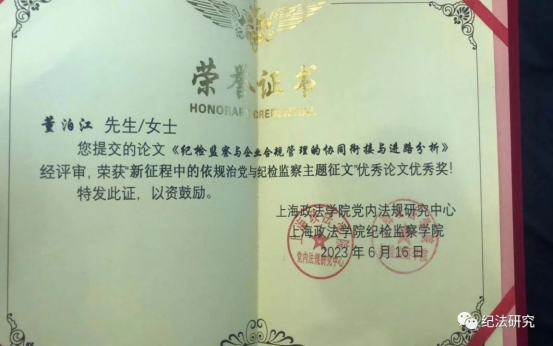 荣誉证书
HONORARY CREDENTIAL
董泊江 先生/女士
您提交的论文《纪检监察与企业合规管理的协同衔接与进路分析》
经评审，荣获“新征程中的依规治党与纪检监察主题征文”优秀论文优秀奖！
特发此证，以资鼓励。
上海政法学院党内法规研究中心
上海政法学院纪检监察学院
2023年6月16日
党内法规研究中心
纪法研究